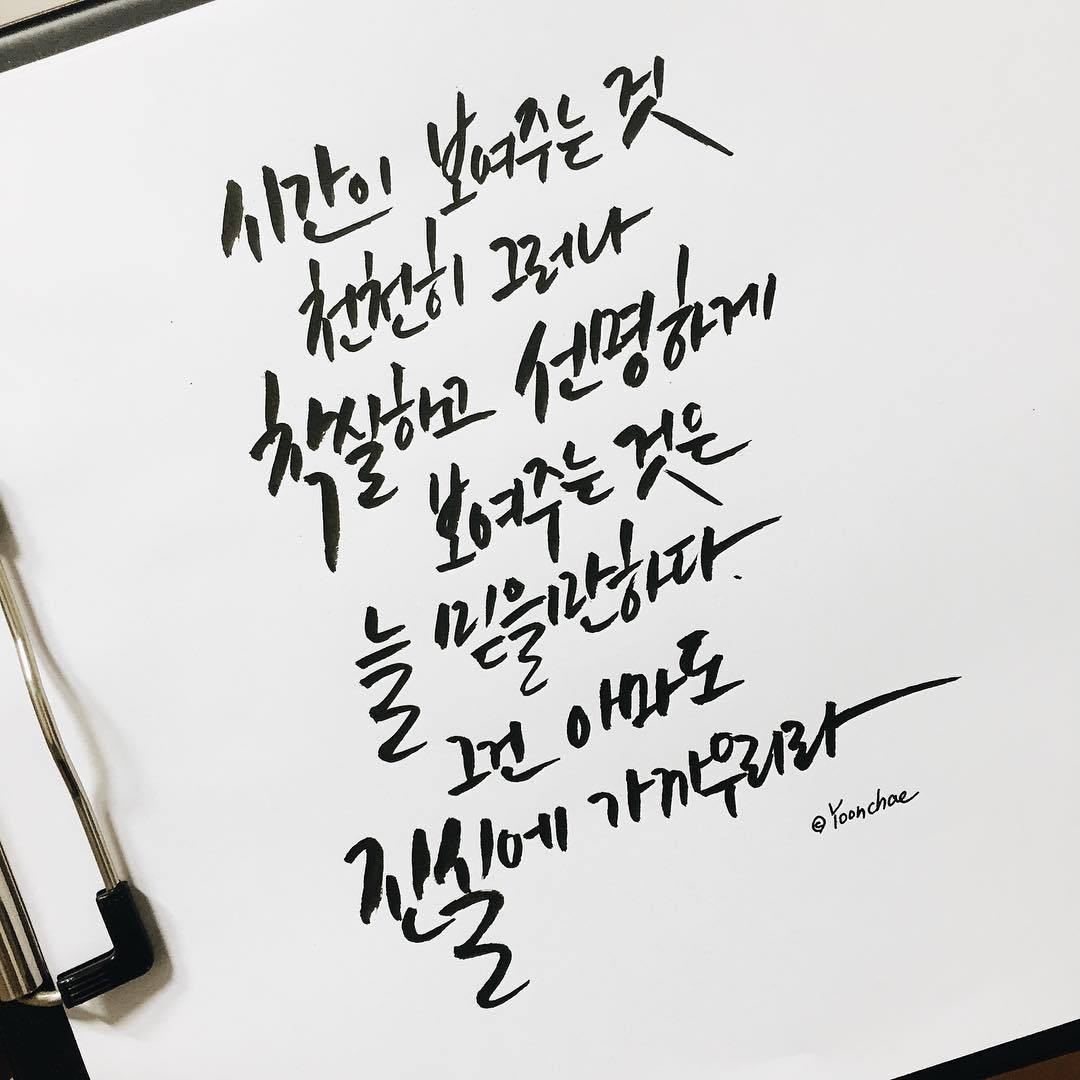 시간이 보여주는 것
천천히 그러나
착실하고 선명하게
보여주는 것은
늘 믿을만하다.
그건 아마도
진실에 가까우리라
©Yoonchae